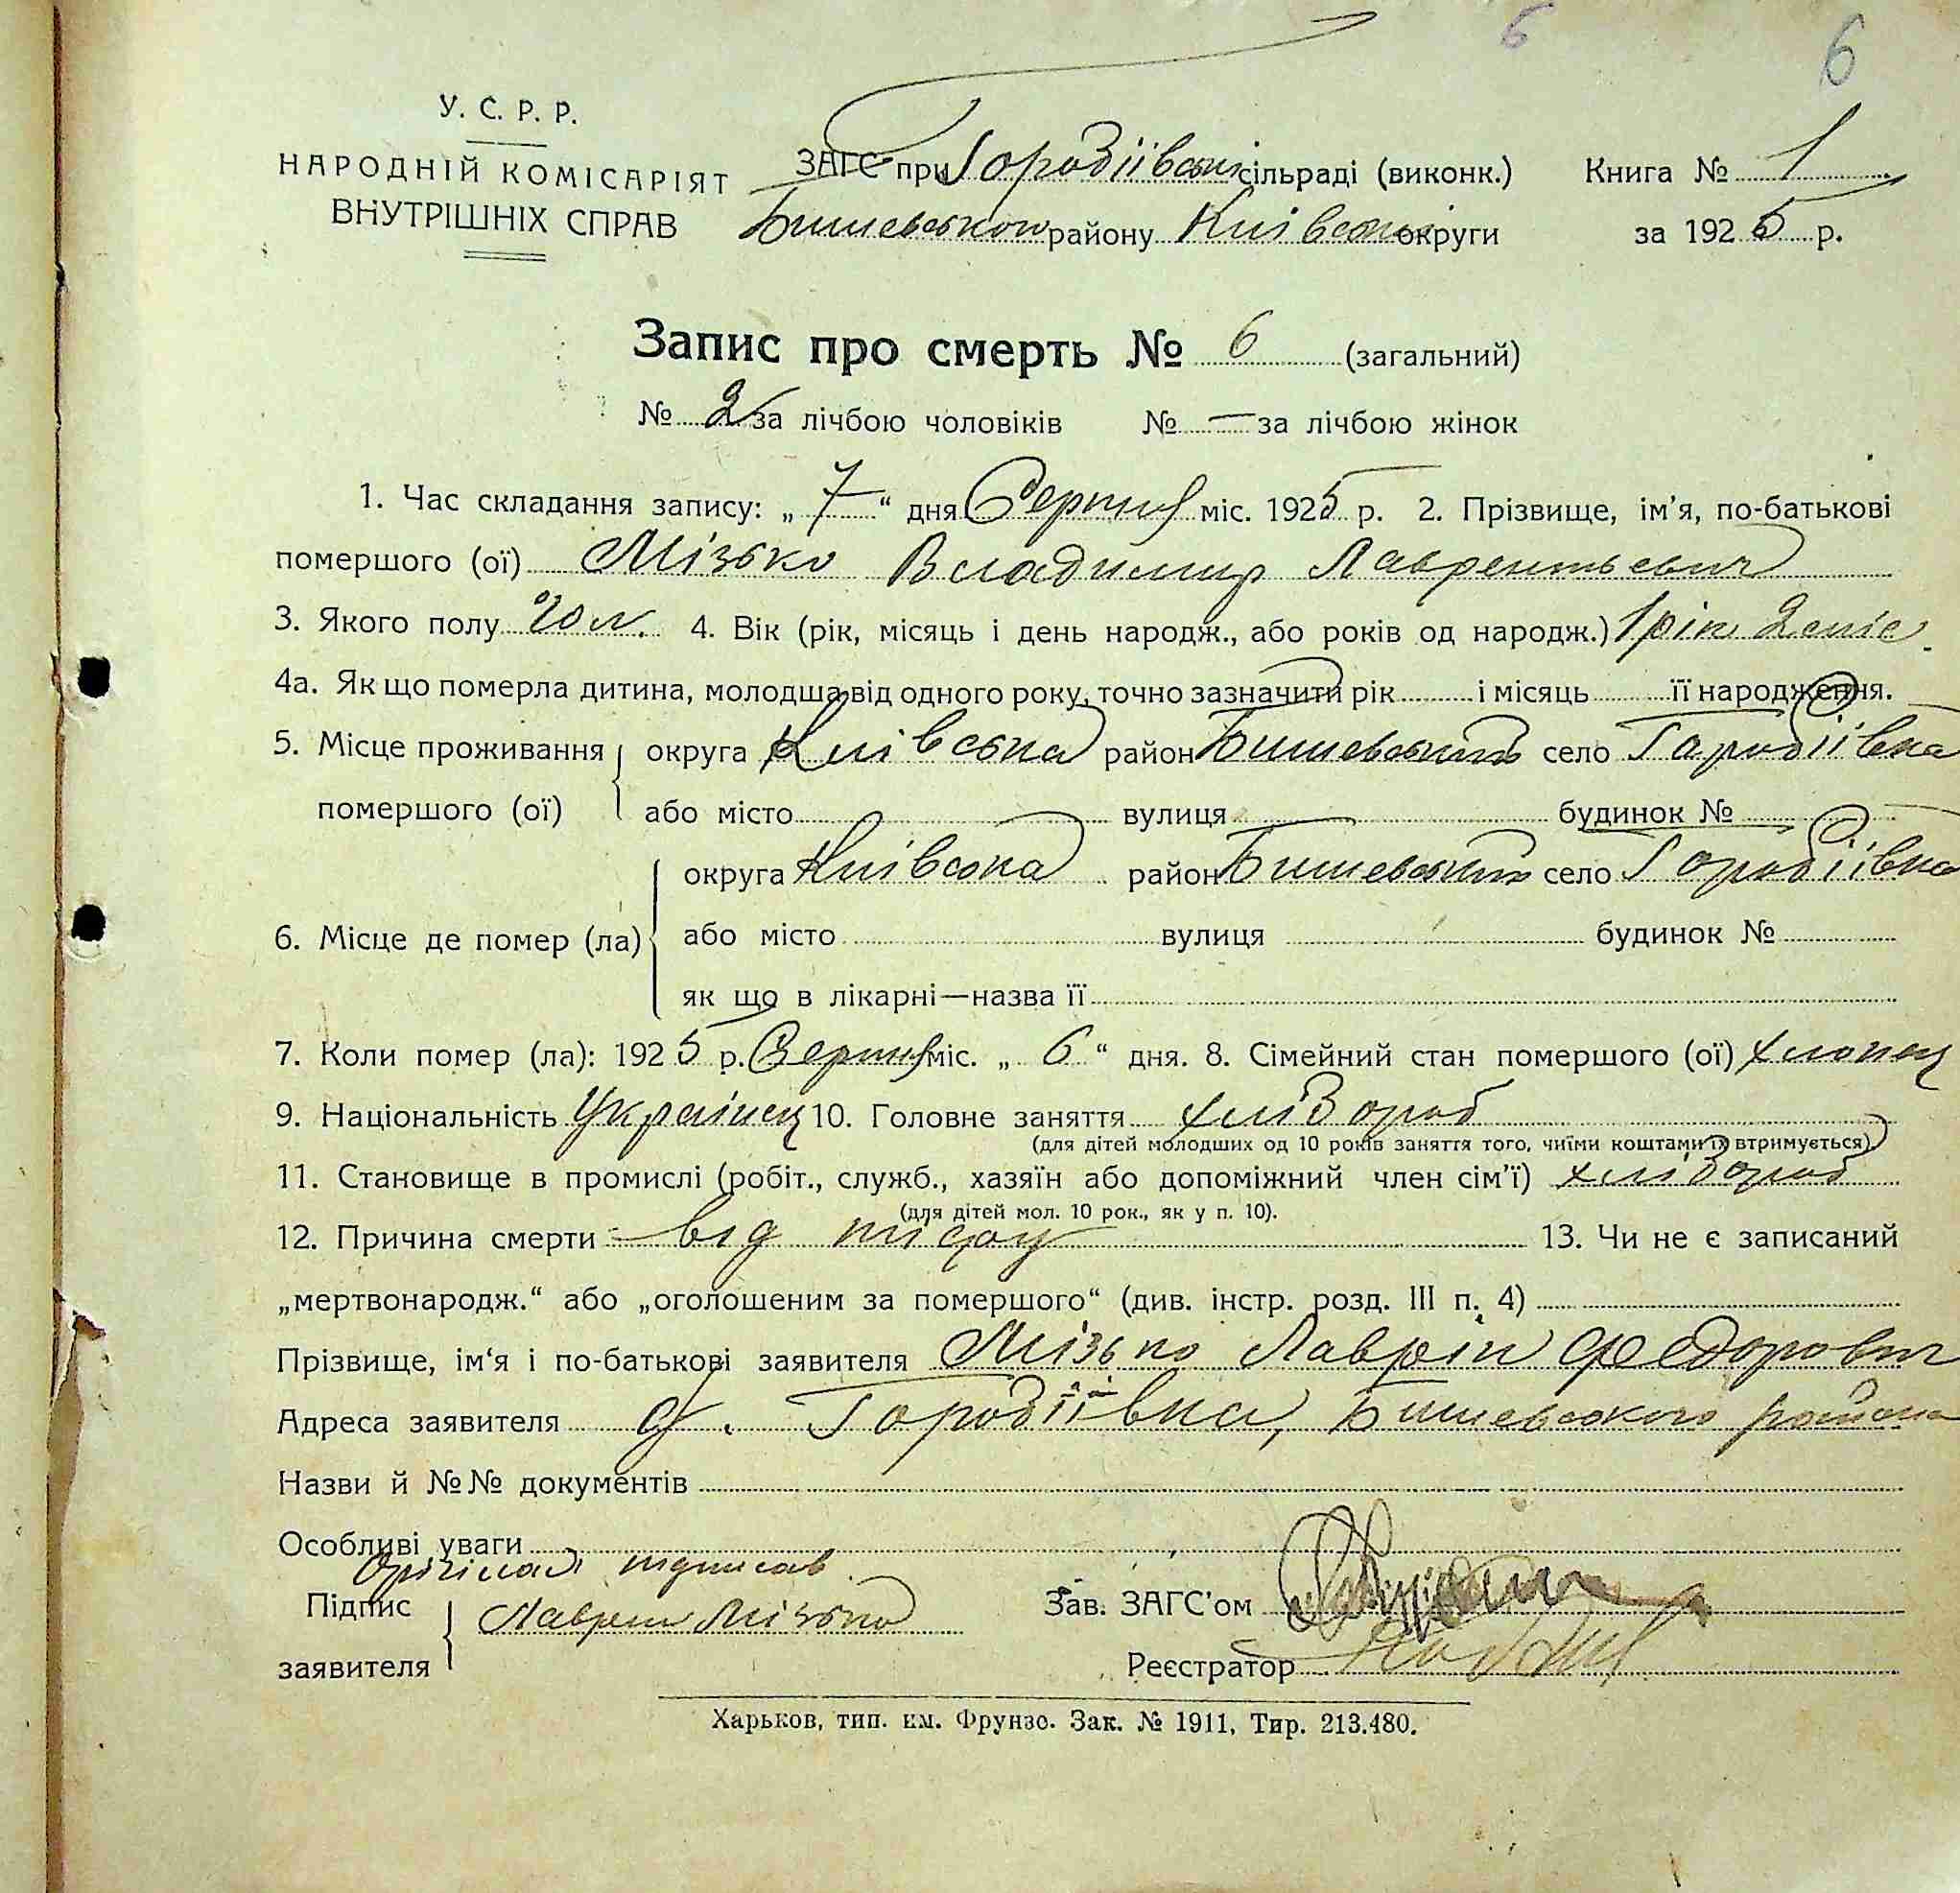 6 6
У. С. Р. Р.
НАРОДНІЙ КОМІСАРІЯТ
ВНУТРІШНІХ СПРАВ
ЗАГС при Городіївські сільраді (виконк.)
Бишевського району Київської округи
Книга № 1
за 1925 р.
Запис про смерть № 6 (загальний)
№ 2 за лічбою чоловіків № — за лічбою жінок
1. Час складання запису: „ 7 “ дня Серпня міс. 1925 р. 2. Прізвище, ім’я, по-батькові
помершого (ої) Мізько Владимир Лаврентьевич
3. Якого полу чол. 4. Вік (рік, місяць і день народж., або років од народж.) 1 рік 2 міс.
4а. Як що померла дитина, молодша від одного року, точно зазначити рік і місяць її народження.
5. Місце проживання округа Київська район Бишевський село Городіївка
помершого (ої) або місто вулиця будинок №
округа Київська район Бишевський село Городіївка
6. Місце де помер (ла) або місто вулиця будинок №
як що в лікарні—назва її
7. Коли помер (ла): 1925 р. Серпня міс. „ 6 “ дня. 8. Сімейний стан помершого (ої) хлопец
9. Національність Українец 10. Головне заняття хлібороб
(для дітей молодших од 10 років заняття того, чиїми коштами їх втримується)
11. Становище в промислі (робіт., служб., хазяїн або допоміжний член сім’ї) хлібороб
(для дітей мол. 10 рок., як у п. 10).
12. Причина смерти від 13. Чи не є записаний
„мертвонародж.“ або „оголошеним за помершого“ (див. інстр. розд. III п. 4)
Прізвище, ім‘я і по-батькові заявителя Мізько Лаврін Федорович
Адреса заявителя с. Городіївка, Бишевського района
Назви й №№ документів
Особливі уваги
Орігінал підписав
Підпис Лаврін Мізько Зав. ЗАГС’ом
заявителя Реєстратор
Харьков, тип. им. Фрунзе. Зак. № 1911, Тир. 213.480.